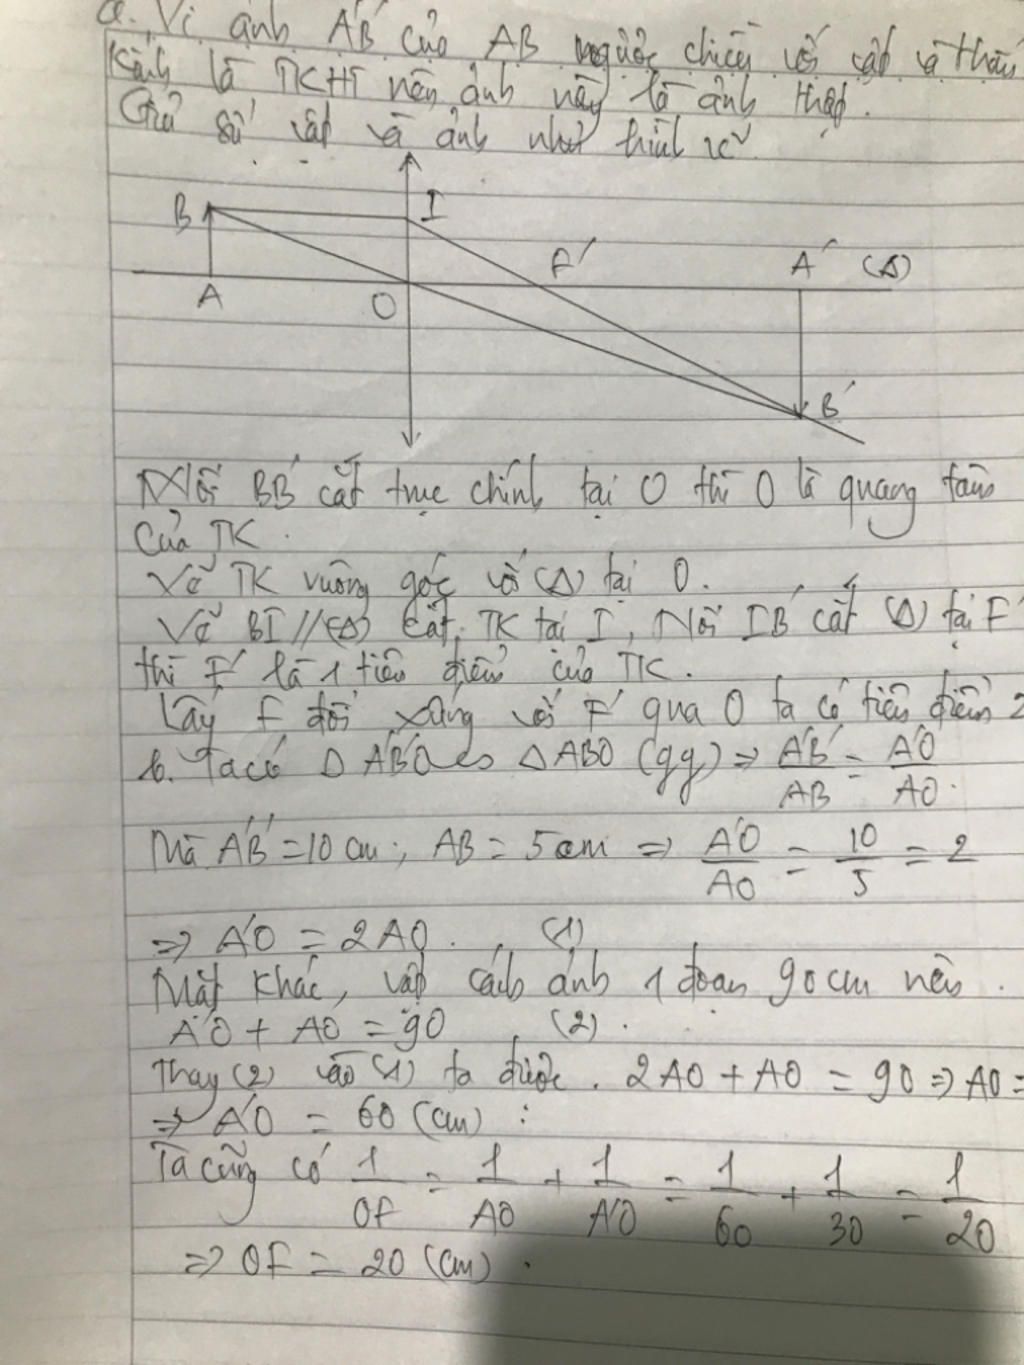 a. Vì ảnh A'B' của AB ngược chiều với vật và thấu
kính là TKHT nên ảnh này là ảnh thật.
Giả sử vật và ảnh như hình vẽ
B
I
F'
A'
(Δ)
A
O
B'
Nối BB' cắt trục chính tại O thì O là quang tâm
của TK.
Vẽ TK vuông góc với (Δ) tại O.
Vẽ BI//(Δ) cắt TK tại I, Nối IB' cắt (Δ) tại F'
thì F' là 1 tiêu điểm của TK.
Lấy F đối xứng với F' qua O ta có tiêu điểm 2
b. Ta có Δ A'B'O ∽ Δ ABO (gg) => A'B'/AB = A'O/AO.
Mà A'B' = 10 cm; AB = 5 cm => A'O/AO = 10/5 = 2
=> A'O = 2AO. (1)
Mặt khác, vật cách ảnh 1 đoạn 90cm nên.
A'O + AO = 90 (2).
Thay (2) vào (1) ta được. 2AO + AO = 90 => AO =
=> A'O = 60 (cm)
Ta cũng có 1/OF = 1/AO + 1/A'O = 1/60 + 1/30 = 1/20
=> OF = 20 (cm).